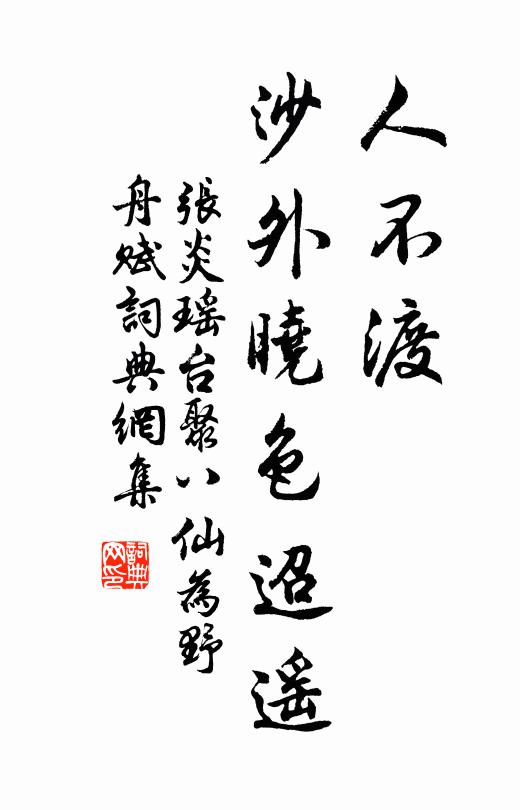 人不渡
沙外曉色迢遥
張炎瑶台聚八仙為野
舟赋詞典網集
詞典
网印